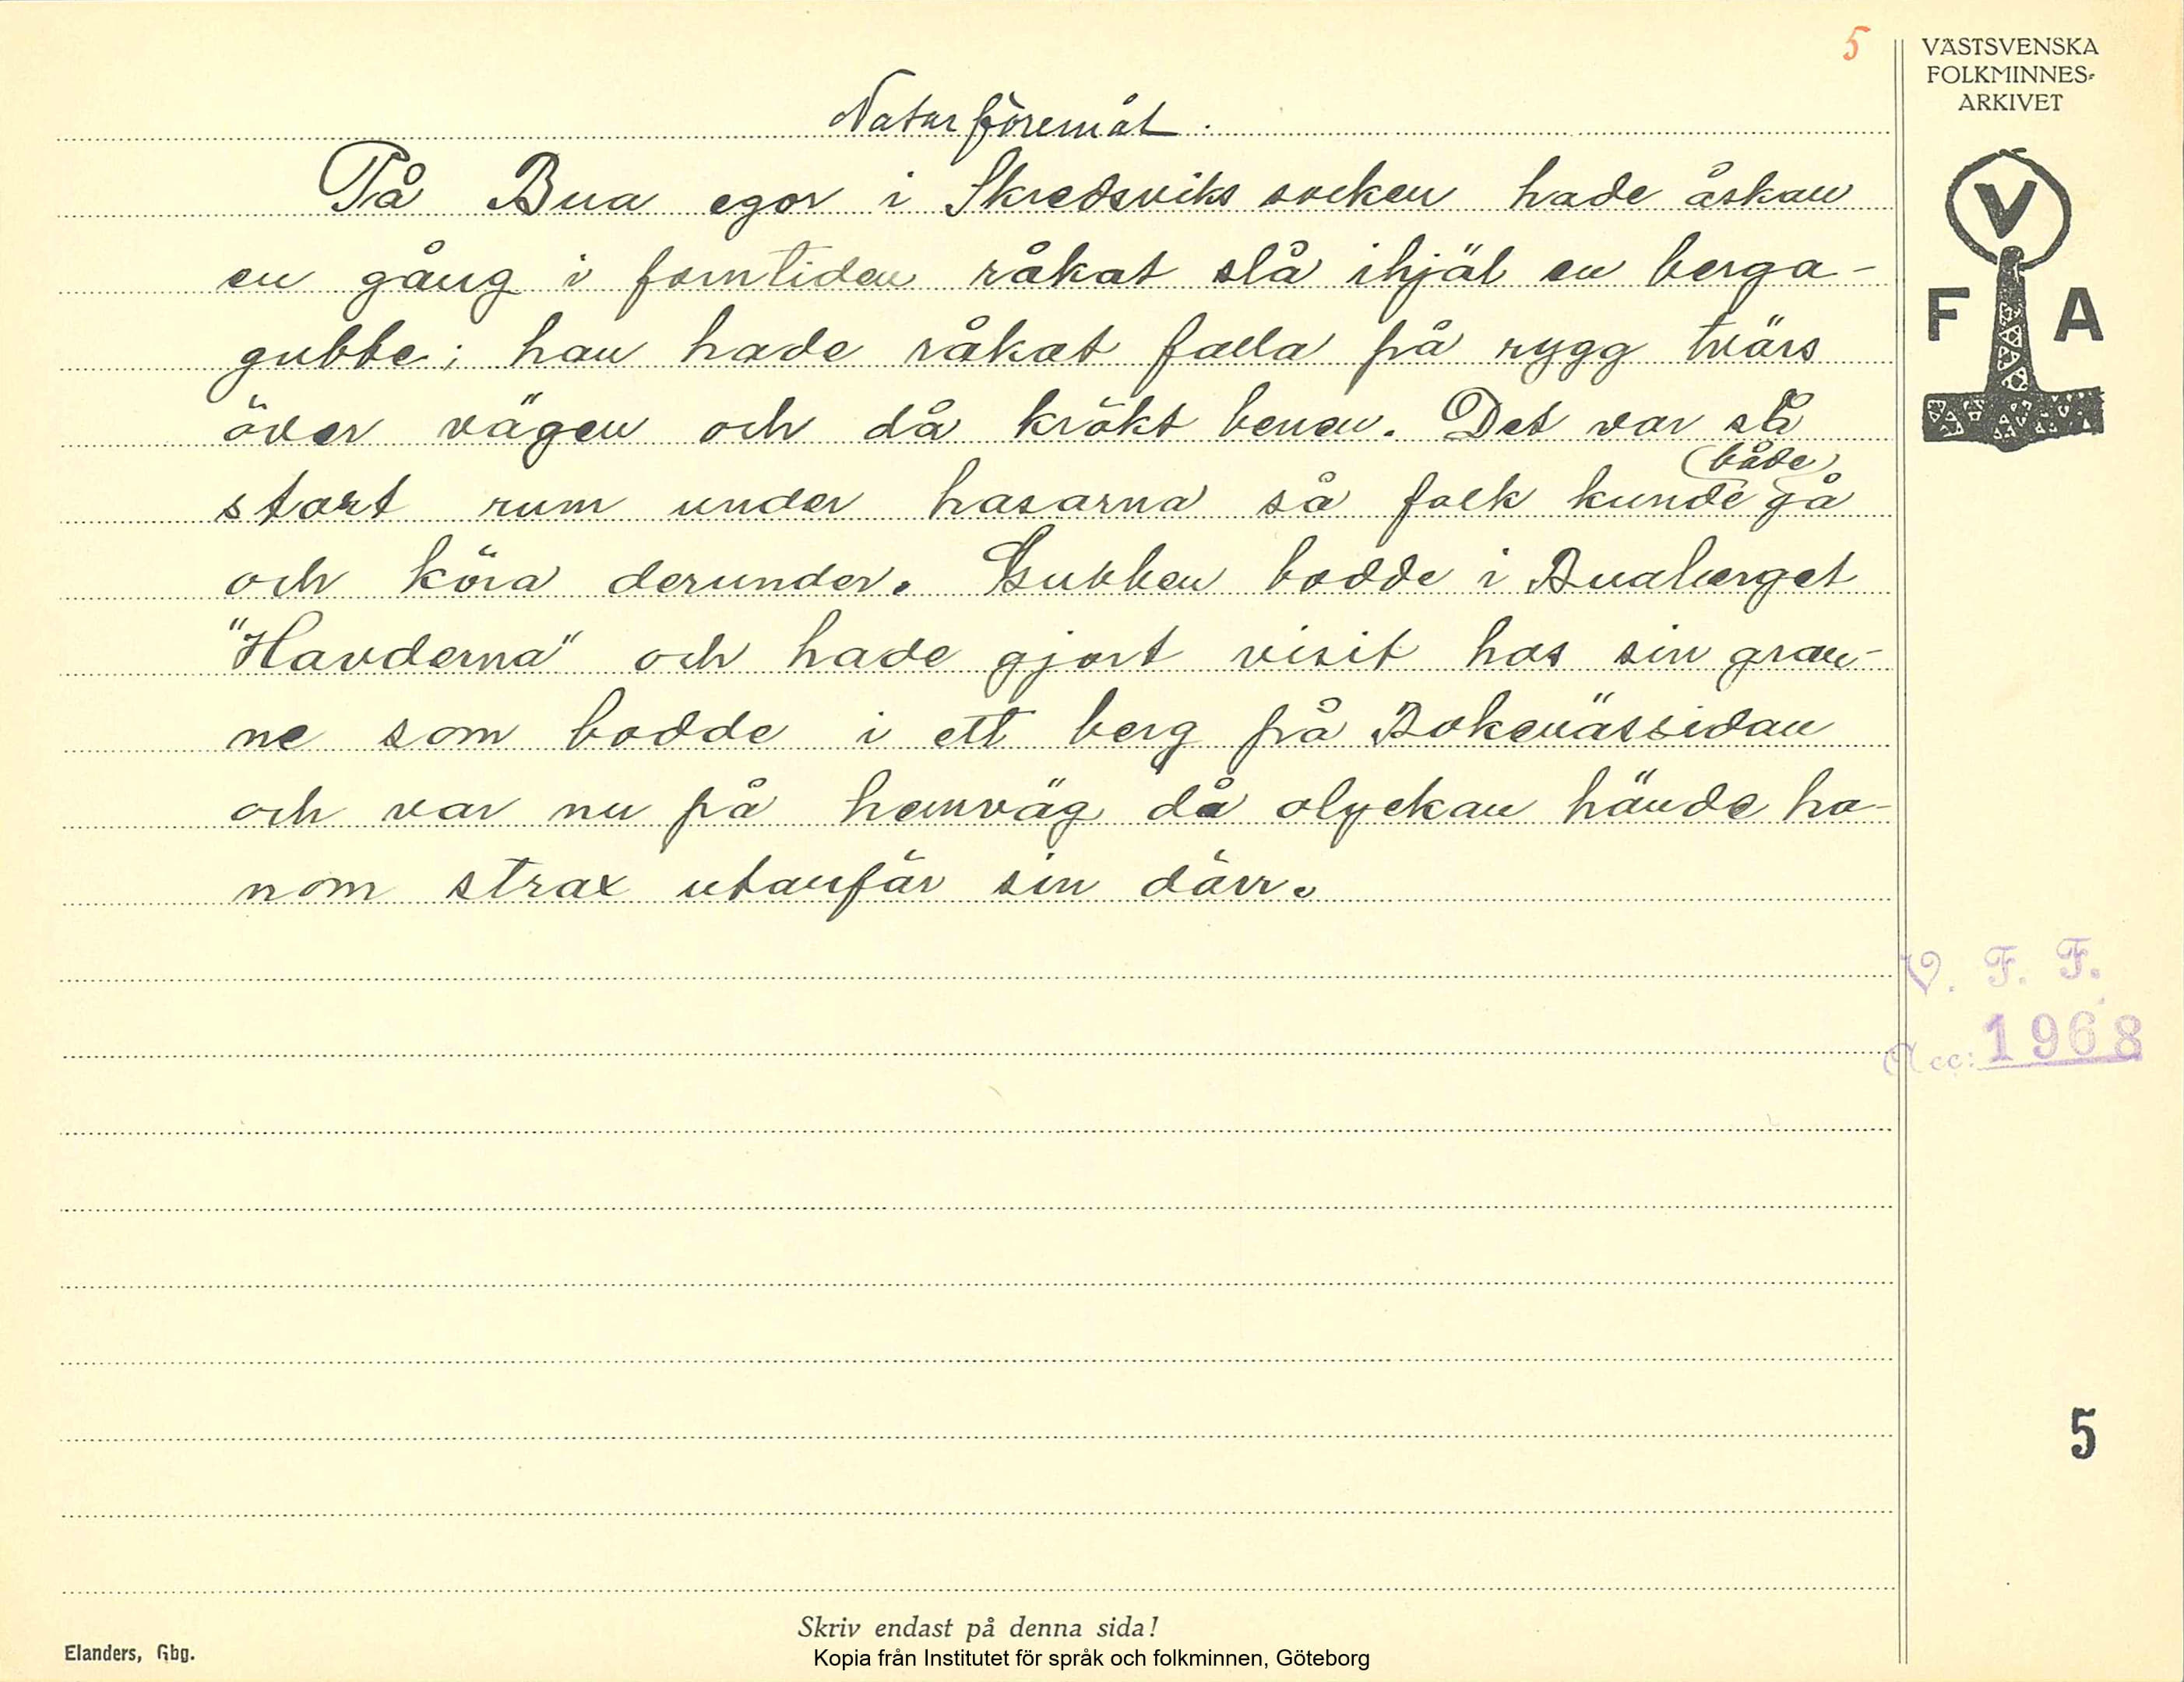 5
VÄSTSVENSKA
FOLKMINNES-
ARKIVET
V
F A
Naturföremål.
På Bua egor i Skredsviks socken hade åskan
en gång i forntiden råkat slå ihjäl en berga-
gubbe; han hade råkat falla på rygg tvärs
över vägen och då krökt benen. Det var så
stort rum under hasarna så folk kunde (både) gå
och köra derunder. Gubben bodde i Buaberget
"Havderna" och hade gjort visit hos sin gran-
ne som bodde i ett berg på Bokenässidan
och var nu på hemväg då olyckan hände ho-
nom strax utanför sin dörr.
V. F. F.
Acc: 1968
5
Skriv endast på denna sida!
Elanders, Gbg.
Kopia från Institutet för språk och folkminnen, Göteborg